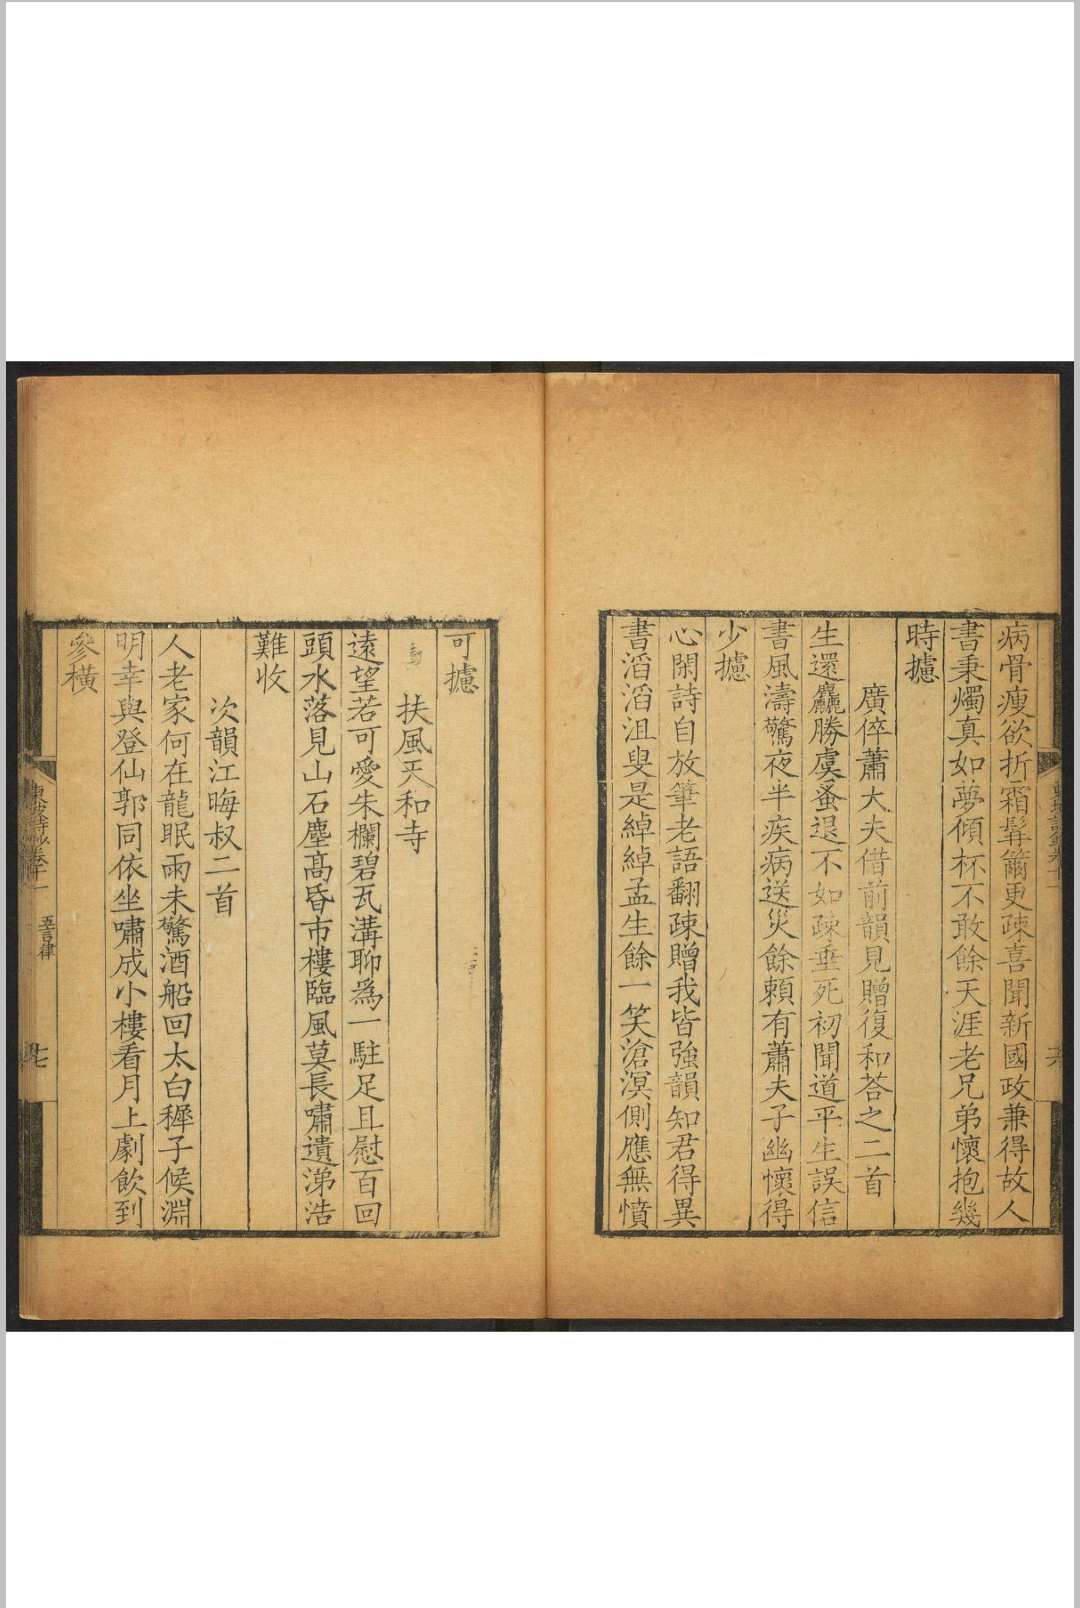 病骨瘦欲折霜髯籋更疎喜聞新國政兼得故人
書秉燭真如夢傾杯不敢餘天涯老兄弟懷抱幾
時攄
廣倅蕭大夫借前韻見贈復和荅之二首
生還麤勝虞蚤退不如疎垂死初聞道平生誤信
書風濤驚夜半疾病送災餘頼有蕭夫子幽懷得
少攄
心閑詩自放筆老語翻疎贈我皆強韻知君得異
書滔滔沮叟是綽綽孟生餘一笑滄溟側應無憤
可攄
扶風天和寺
逺望若可愛朱欄碧瓦溝聊爲一駐足且慰百回
頭水落見山石塵髙昏市樓臨風莫長嘯遺涕浩
難收
次韻江晦叔二首
人老家何在龍眠雨未驚酒船回太白穉子候淵
明幸與登仙郭同依坐嘯成小樓看月上劇飲到
參橫
東坡詩鈔卷十一
五言律
七